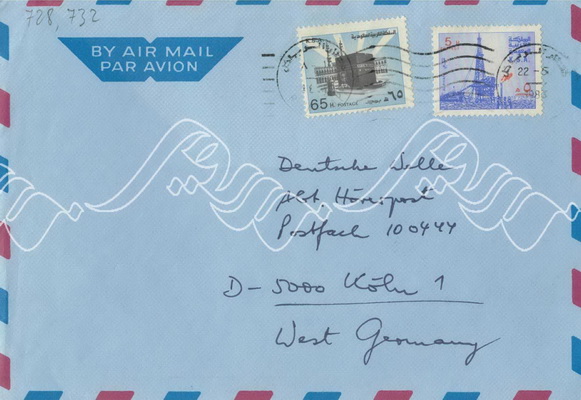 728, 732
BY AIR MAIL
PAR AVION
65 H. POSTAGE ٦٥
5
22-5
Deutsche Welle
Abt. Hörerpost
Postfach 100444
D-5000 Köln 1
West Germany